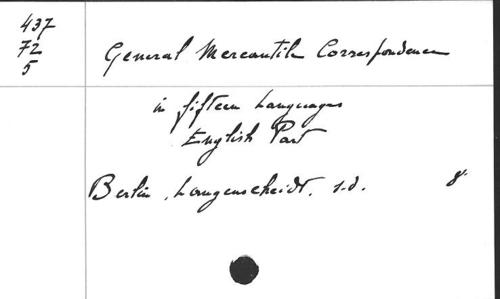 437
72
5
General Mercantile Correspondence
in fifteen Languages
English Part
Berlin, Langenscheidt, s.d. 8°